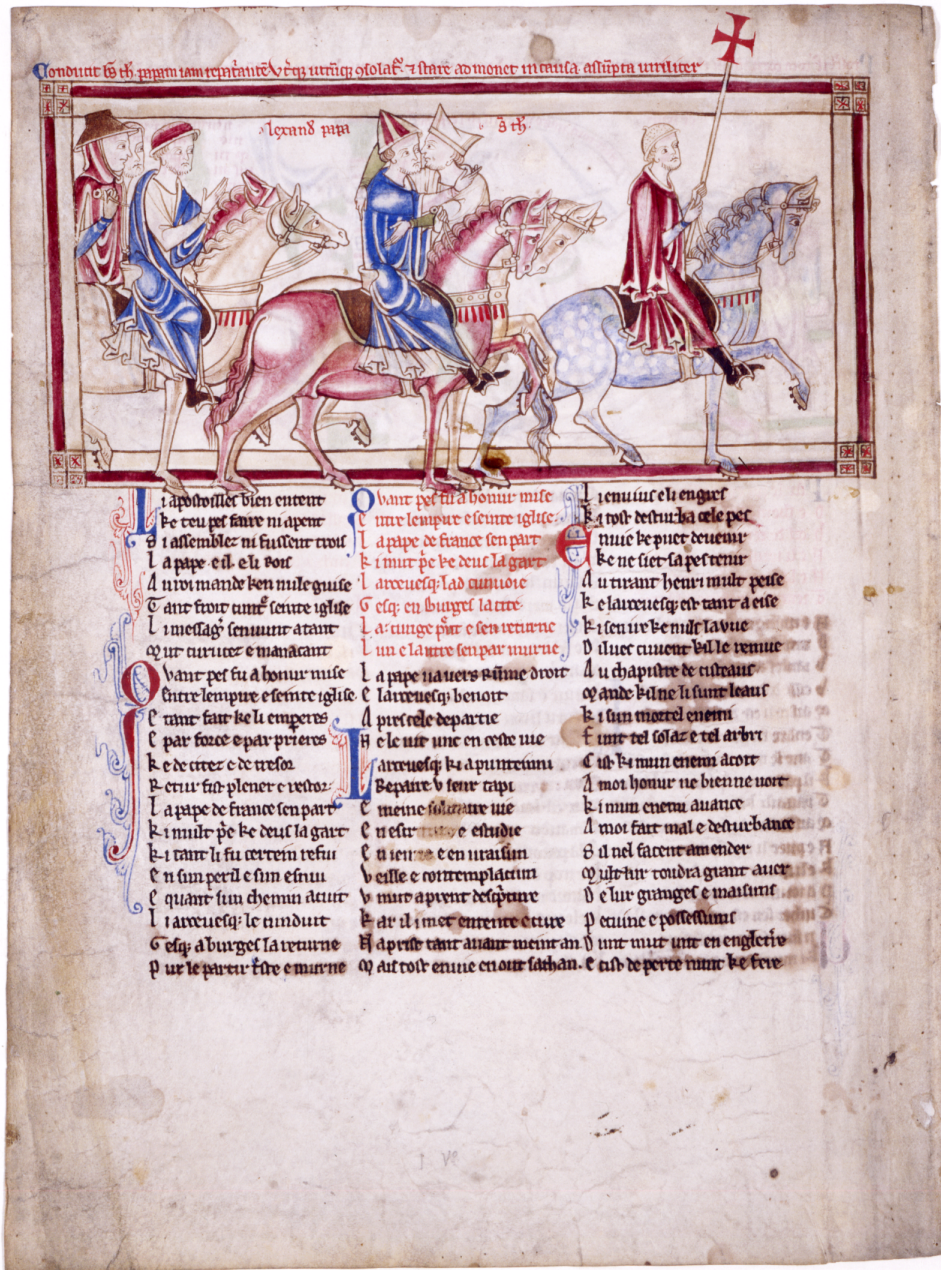 Conducit bs th papam iam repatante Vtq utruq gsolat. ⁊ stare ad monet in causa assupta uiriliter
alexand papa
bs th.
L i apostoilles bien entent
K e teu pes faire ni apent
S i assemblez ni fussent trois
L a pape e il e li rois
A u roi mande ken nule guise
T ant froit cuntre seinte iglise
L i messag senuunt atant
M ut curucez e manacant
Q vant pes fu a honur mise
Entre lempire e seinte iglise
E tant fait ke li emperes
E par force e par prieres
K e de citez e de tresor
R etur fist plener e restor
L a pape de france sen part
K i mult pe ke deus la gart
K i tant li fu certein refui
E n sun peril e sun esnui
E quant sun chemin acuit
L i arceuesq le cunduit
G esq a burges la returne
P ur le partir tste e murne
Q vant pes fu a honur mise
E ntre lempire e seinte iglise
L a pape de france sen part
K i mut pe ke deus la gart
L arceuesq lad cunuoie
G esq en burges la cite
L a cunge pnt e sen returne
L un e lautre sen par murne
L a pape ua uers Rume droit
E larceuesq benoit
A pres cele departie
N e le uit unc en ceste uie
L arceuesq ki a punteinni
Repaire v seut tapi
E meine solitaire uie
E n estre e estudie
E n ieune e en uraisun
V eisse e contemplaciun
V mut aprent descpture
K ar il i met entente e cure
N aprist tant auant meint an
M ais tost enuie en out sathan.
L i enuius e li engres
K i tost desturba cele pes
E nuie ke puet deuenir
K e ne siet sa pes tenir
A u tirant henri mult peise
K e larceuesq est tant a eise
K i sen ire ke nuls la uue
D iluec cuuent kil le remue
A u chapistre de cisteaus
M ande kil ne li sunt leaus
K i sun mortel enemi
F unt tel solaz e tel abri
C ist ki mun enemi acoit
A moi honur ne bien ne uoit
K i mun enemi auance
A moi fait mal e desturbance
S il nel facent amender
M ult lur toudra grant auer
D e lur granges e maisuns
P ecuine e possessiuns
D unt mut unt en engletre
E cist de perte nunt ke fere